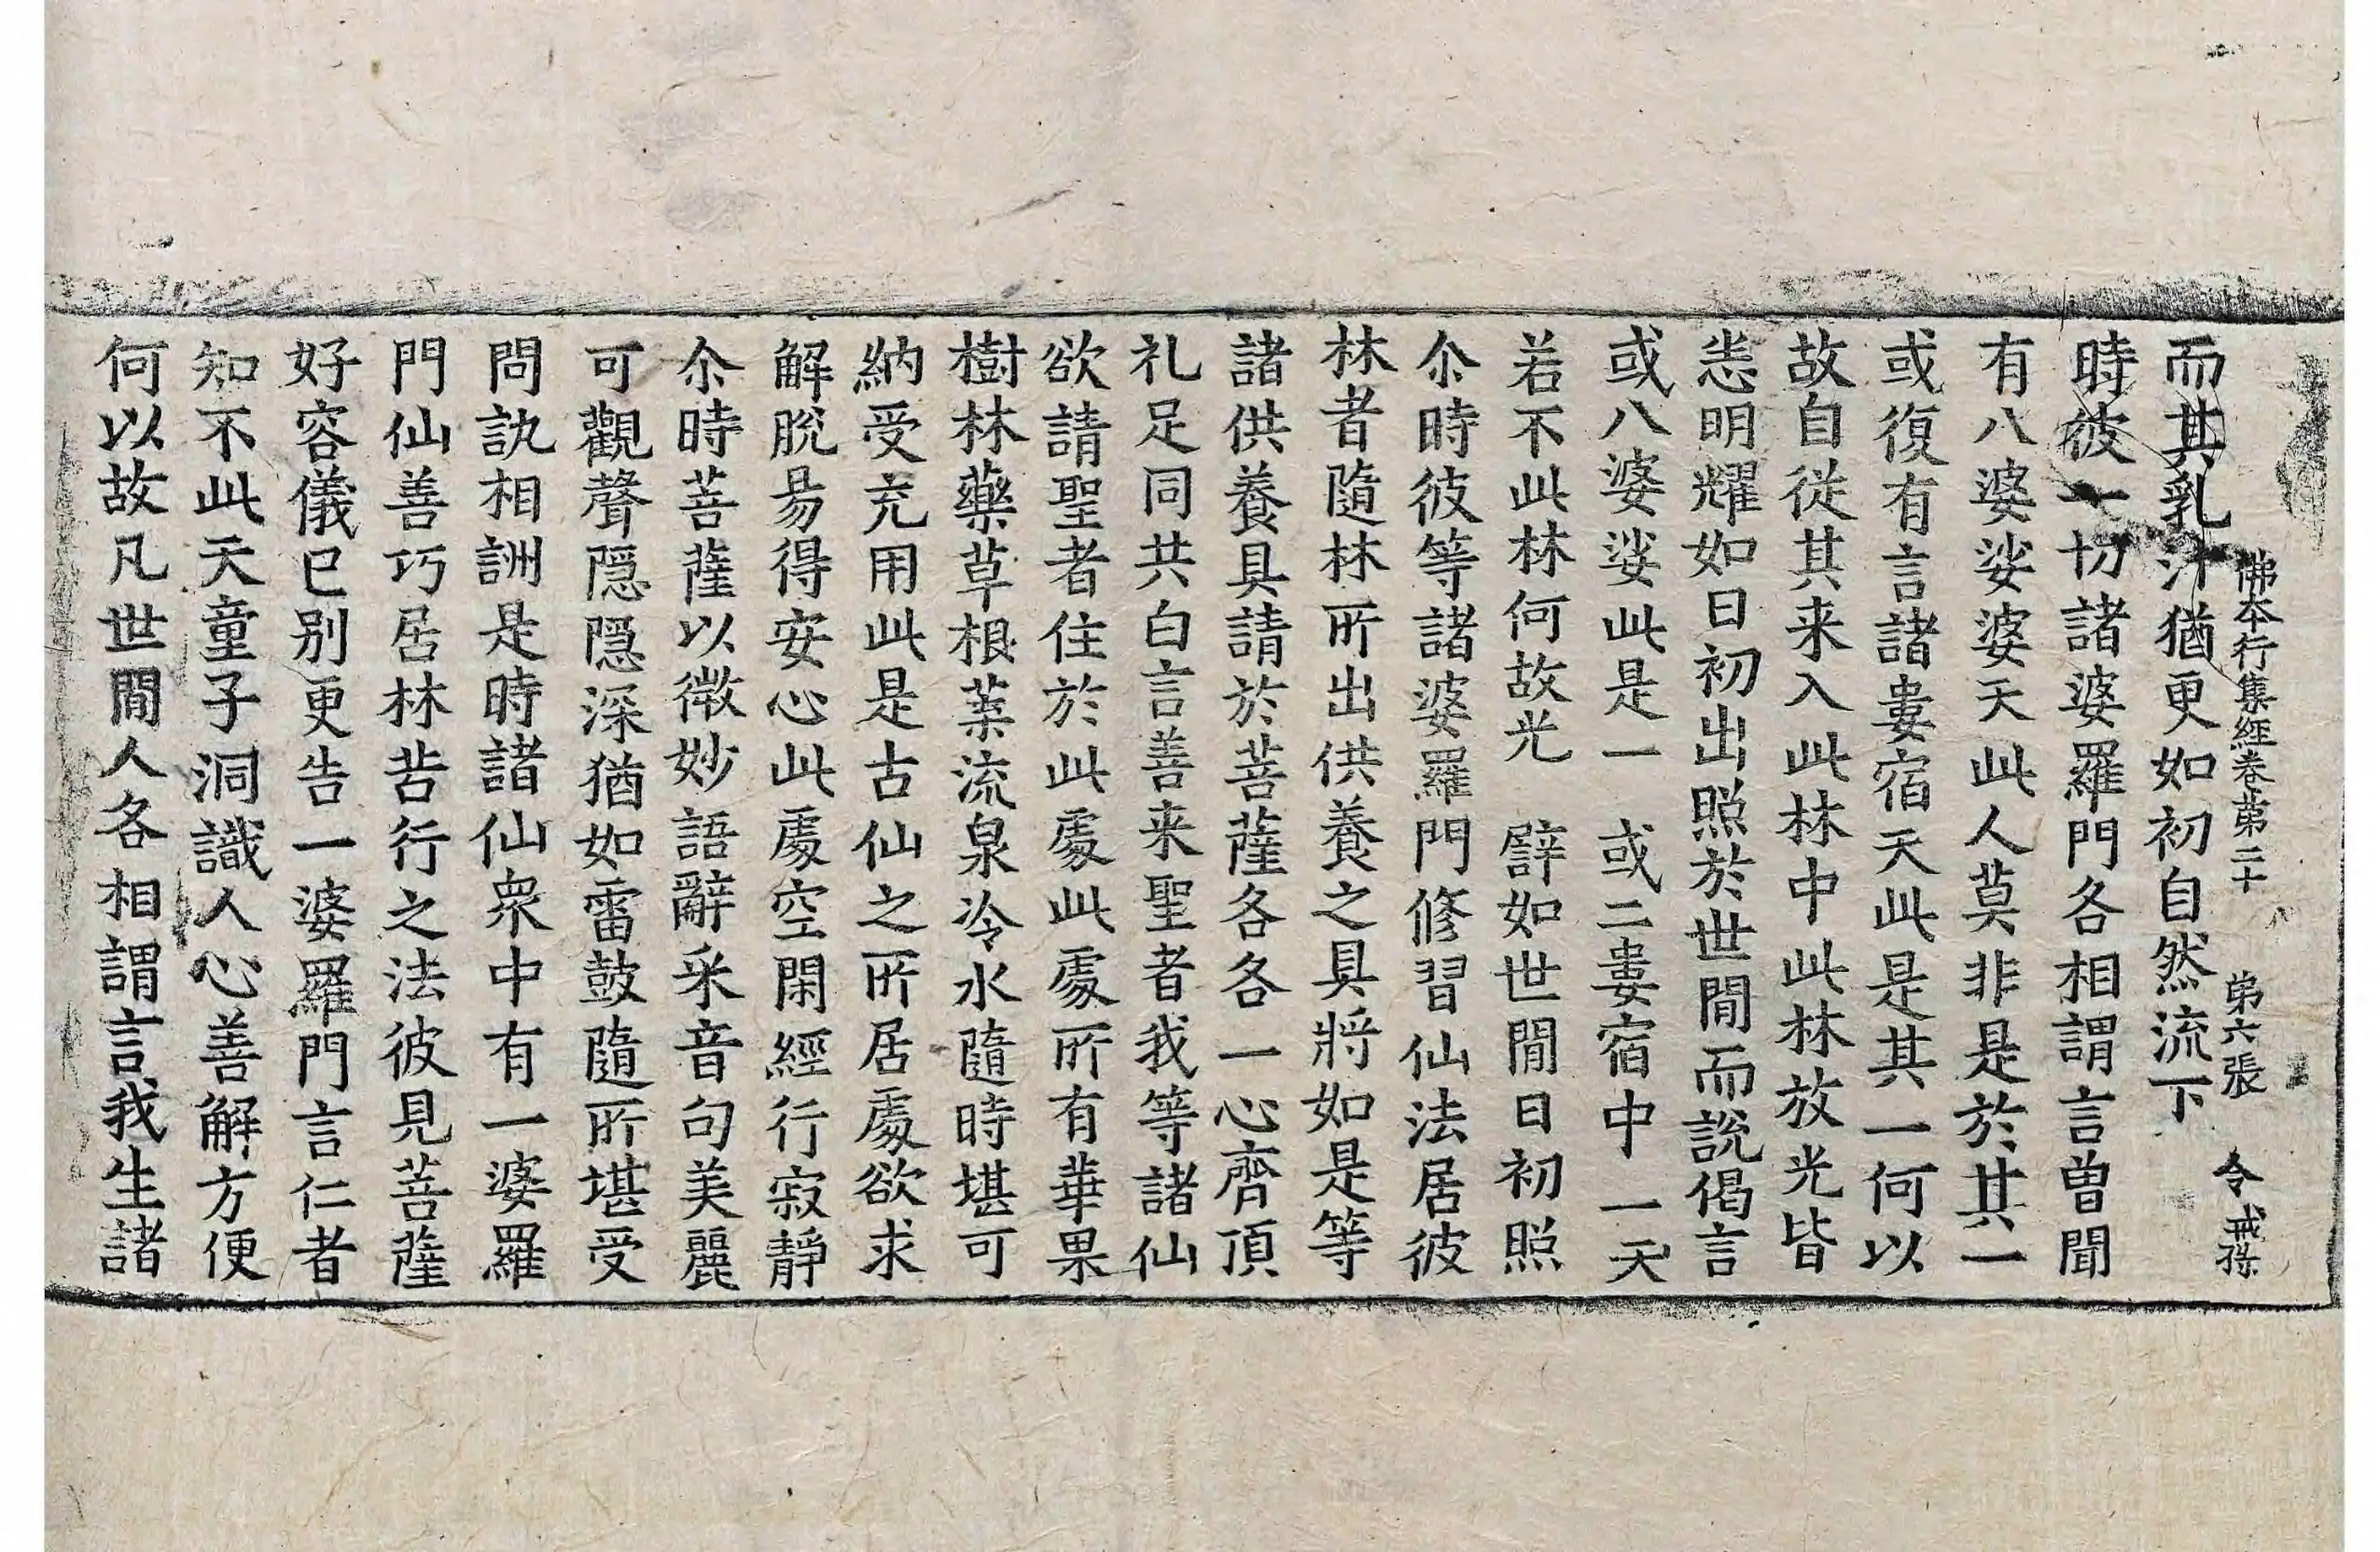 佛本行集經卷苐二十 苐六張 令 戒孫
而其乳汁猶更如初自然流下
時彼一切諸婆羅門各相謂言曾聞
有八婆娑婆天此人莫非是於其一
或復有言諸婁宿天此是其一何以
故自從其来入此林中此林放光皆
恙明耀如日初出照於世間而說偈言
或八婆娑此是一 或二婁宿中一天
若不此林何故光 譬如世間日初照
尒時彼等諸婆羅門修習仙法居彼
林者隨林所出供養之具將如是等
諸供養具請於菩薩各各一心齊頂
礼足同共白言善来聖者我等諸仙
欲請聖者住於此處此處所有華果
樹林藥草根菜流泉冷水隨時堪可
納受充用此是古仙之所居處欲求
解脫易得安心此處空閑經行寂靜
尒時菩薩以微妙語辭采音句美麗
可觀聲隱隱深猶如雷鼓隨所堪受
問訊相詶是時諸仙衆中有一婆羅
門仙善巧居林苦行之法彼見菩薩
好容儀已别更告一婆羅門言仁者
知不此天童子洞識人心善解方便
何以故凡世間人各相謂言我生諸